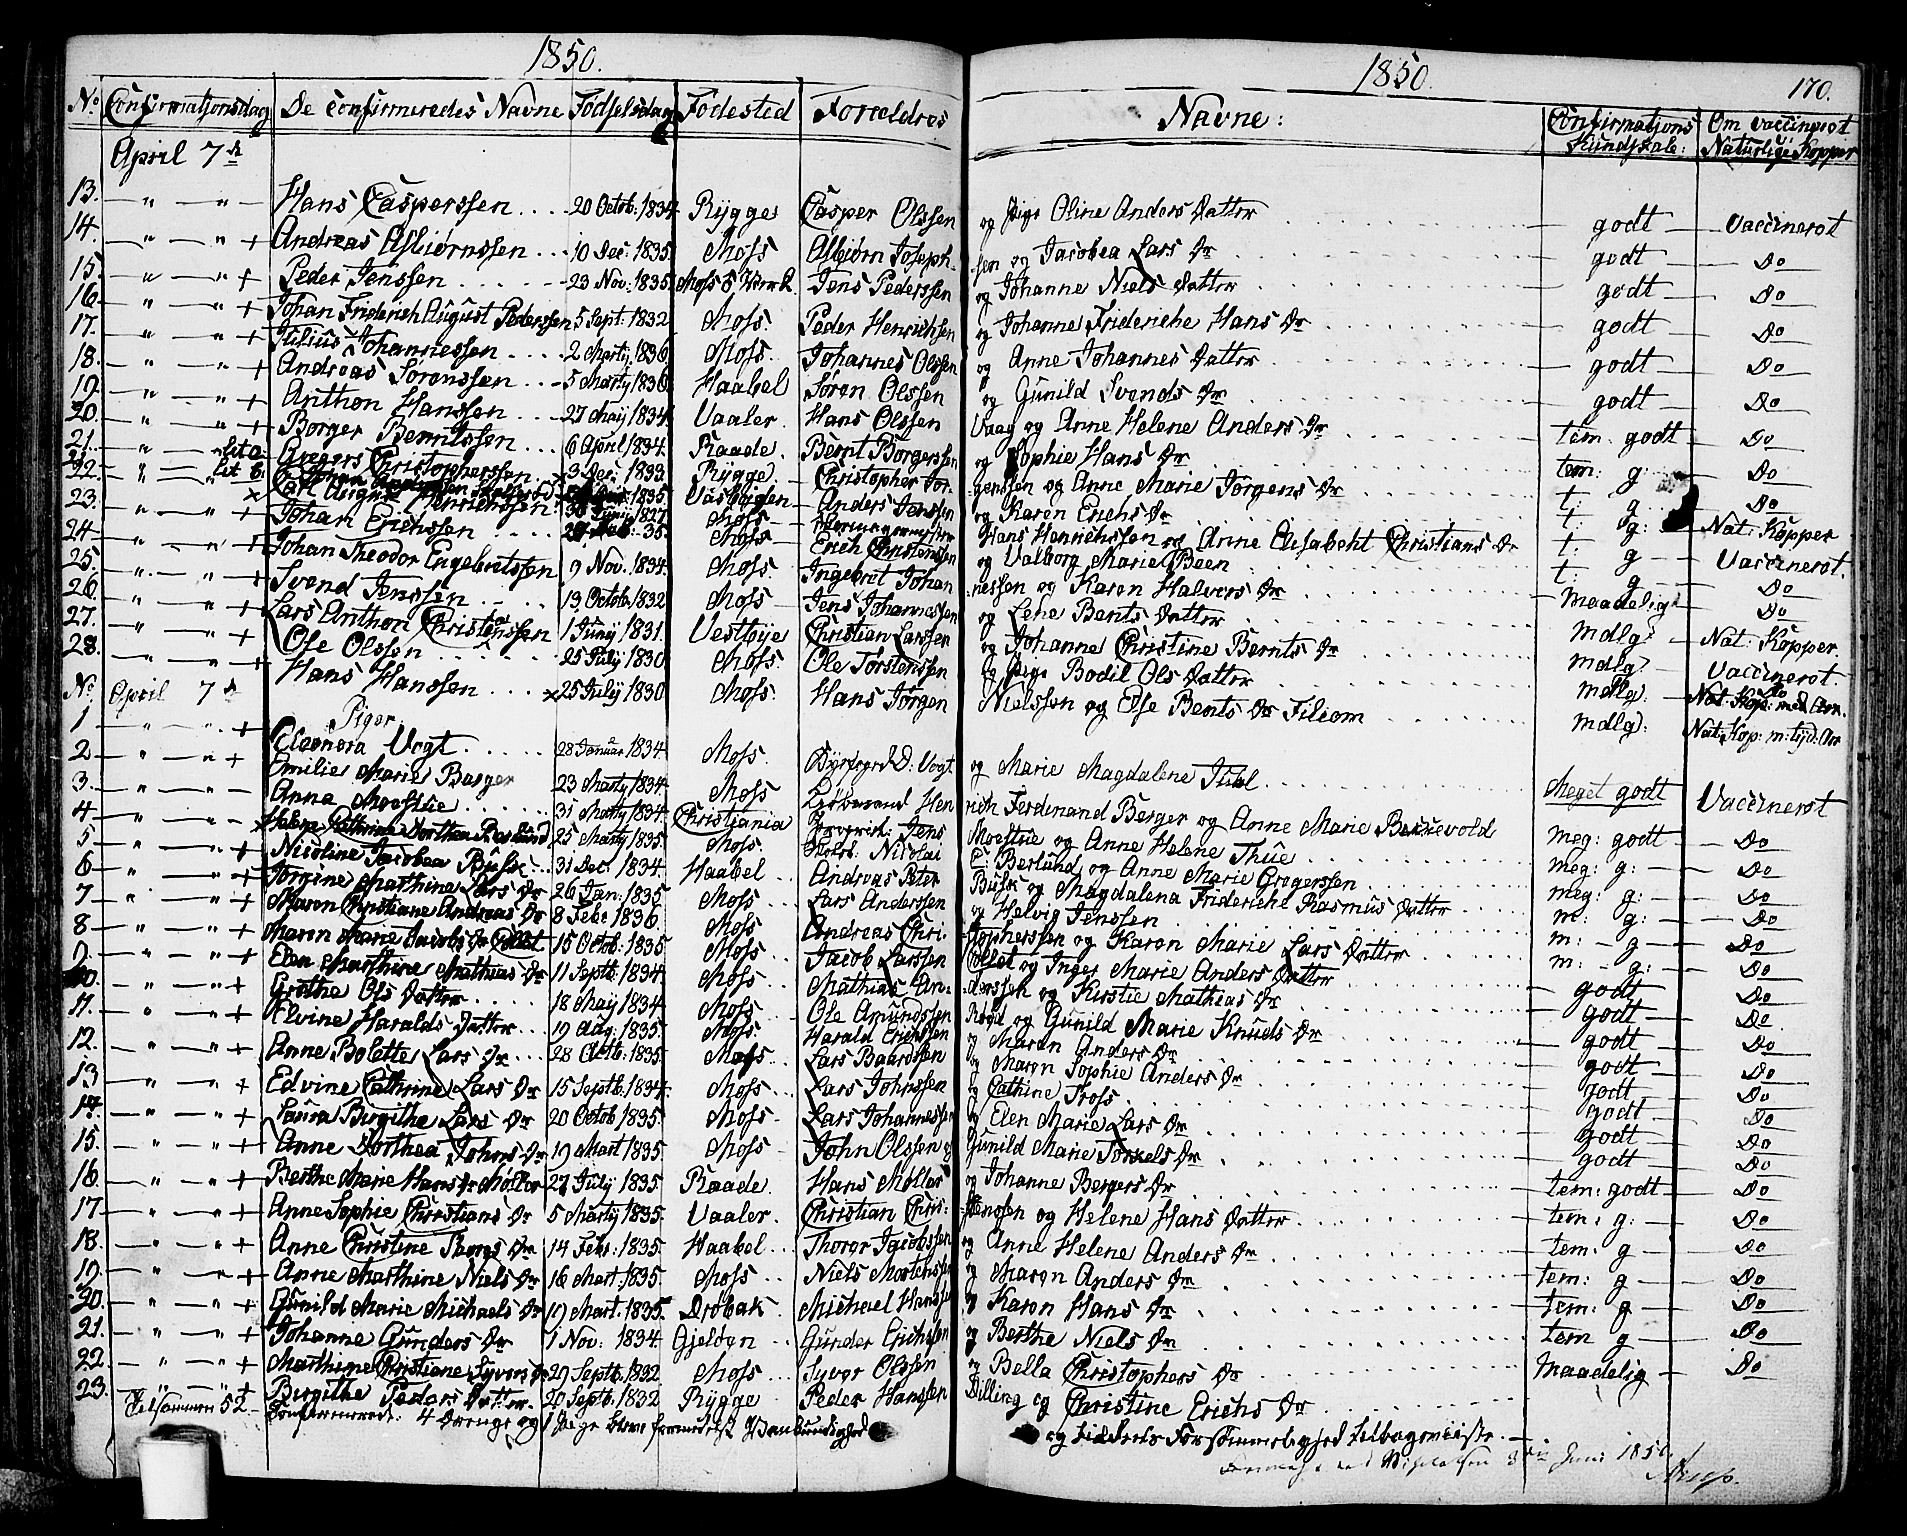 1850.
No Confirmationsdag De Confirmeredes Navne Fødselsdag Fødested Foreldres
April 7de
13. Hans Casperssen 20 Octob. 1834 Rÿgge Casper Olssen
14. Andreas Asbiørnssen 10 Dec: 1835 Moss Asbiørn Joseph-
15. Peder Jenssen 23 Nov: 1835 Moss Værk Jens Pederssen
16. Johan Friderich August Pederssen 5 Sept: 1832 Moss. Peder Henrichsen
17. Julius Johannessen 2 Martÿ 1836 Moss. Johannes Olssen
18. Andreas Sørenssen 5 Martÿ 1836 Haabel Søren Olssen
19. Anthon Hanssen 27 Maÿ 1834 Vaaler. Hans Olssen
20. Borger Berntssen 6 April 1834. Raade. Bernt Borgerssen
21. Lit a Gregers Christopherssen 3 Dec: 1833. Rÿgge. Christopher Jør-
22. Lit b. 1835 Anders Jenssen
Carl August Henrichssen 1827 Moss
23. Johan Erichssen 35 Moss Erich Christenssen
24. Johan Theodor Engebretssen 9 Nov. 1834. Moss. Ingebret Johan
25. Svend Jenssen 13 Octob 1832 Moss. Jens Johannessen
26. Lars Anthon Christianssen 1 Junÿ 1831. Vestbÿe Christian Larssen
27. Ole Olssen 25 Julÿ 1830 Moss. Ole Torstenssen
28. Hans Hanssen 25 Julÿ 1830 Moss. Hans Jørgen
No. April 7de
Piger
1 Eleonora Vogt 28 Januar 1834. Moss. Bÿefoged D: Vogt
2 Emilie Marie Berger 23 Martÿ 1834. Moss Hen
3. Anna Moestue 31 Martÿ 1834. Christiania Jens
4 Helene Cathrine Dorthea Berlund 25 Martÿ 1835. Moss. Nicolai
5 Nicoline Jacobea Busk 31 Dec. 1834. Haabel Andreas Peter
6 Jørgine Marthine Lars Dr 26 Jan: 1835 Moss. Lars Anderssen
7 Maren Christiane Andreas Dr 8 Febr 1836. Moss. Andreas Chri-
8 Maren Marie Jacobs Dr Collet 15 Octob: 1835 Moss. Jacob Larssen
9. Elen Marthine Mathias Dr 11 Septb. 1834. Moss. Mathias An-
10. Grethe Ols Datter 18 Maÿ 1834. Moss. Ole Amundssen
11. Elvine Haralds Datter 19 Aug: 1835. Moss. Harald Erichssen
12. Anne Bolette Lars Dr 28 Octb: 1835. Moss. Lars Baardssen
13 Edvine Cathrine Lars Dr 15 Septb. 1834. Moss. Lars Johnssen
14. Laura Birgithe Lars Dr 20 Octob 1835. Moss. Lars Johannessen
15. Anne Dorthea Johns Dr 19 Mart 1835. Moss John Olssen og
16 Berthe Marie Hans Dr Møller 27 Julÿ 1835. Raade. Hans Møller
17 Anne Sophie Christians Dr 5 Martÿ 1835. Vaaler. Christian Chris-
18. Anne Christine Thores Dr 14 Febr. 1835. Haabel Thorer Jacobssen
19. Anne Marthine Niels Dr 16 Mart. 1835. Moss Niels Mortenssen
20. Gunild Marie Michaels Dr 19 Mart. 1835. Drøbak Michael Hanssen
21. Johanne Gunders Dr 1 Nov: 1834. Gjeløen Gunder Erichssen
22 Marthine Christiane Syvers Dr 29 Septb. 1832. Moss Syver Olssen
23. Birgithe Peders Datter 20 Septb. 1832 Rÿgge Peder Hanssen
Tilsammen 52 Confirmerede: 4 Drenge og 1 Pige bleve formedelst Vankundighed
1850. 170.
Navne: Confirmations Kundskab: Om Vaccineret Naturlige Kopper
og Pige Oline Anders Datter godt Vaccineret
sen og Jacobea Lars Dr godt Do
og Johanne Niels Datter godt Do
og Johanne Frideriche Hans Dr godt Do
og Anne Johannes Datter godt Do
og Gunild Svends Dr godt Do
Vaag og Anne Helene Anders Dr tem: godt Do
og Sophie Hans Dr tem: g: Do
genssen og Anne Marie Jørgens Dr t: g Do
og Karen Erichs Dr t: g: Nat: Kopper
Hans Henrichssen og Anne Elisabeht Christians Dr t: g Vaccineret.
og Valborg Marie Been t: g Do
nessen og Karen Halvors Dr Maadelig Do
og Lene Bents Datter mdlg: Nat: Kopper.
og Johanne Christine Bernts Dr mdlg: Vaccineret.
og Pige Bodil Ols Datter mdlg:
Nielssen og Else Bents Dr Fileom mdlg: Nat: Kop: m: tÿd: Arr
og Marie Magdalene Juul Meget godt Vaccineret
rich Ferdinand Berger og Anne Marie Bekkevold meg: godt Do
Moestue og Anne Helene Thue meg: g: Do
C: Berlund og Anne Marie Gregerssen meg: g: Do
Busk og Magdalena Frideriche Rasmus Datter m: g: Do
og Helvig Jenssen m: g Do
stopherssen og Karen Marie Lars Datter m: g: Do
Collet og Inger Marie Anders Datter godt Do
derssen og Kirstie Mathias Dr godt Do
Røed og Gunild Marie Knuds Dr godt Do
og Maren Anders Dr godt Do
og Maren Sophie Anders Dr godt Do
og Cathine Foss godt Do
og Elen Marie Lars Dr godt Do
Gunild Marie Torkels Dr godt Do
og Johanne Bergers Dr tem: godt Do
stenssen og Helene Hans Datter tem: g: Do
og Anne Helene Anders Dr tem: g Do
og Maren Anders Dr tem: g Do
og Karen Hans Dr tem: g Do
og Berthe Niels Dr tem g Do
og Bella Christophers Dr Maadelig Do
Dilling og Christine Erichs Dr
og Forsømmelighed tilbageviiste.
Juni 1850